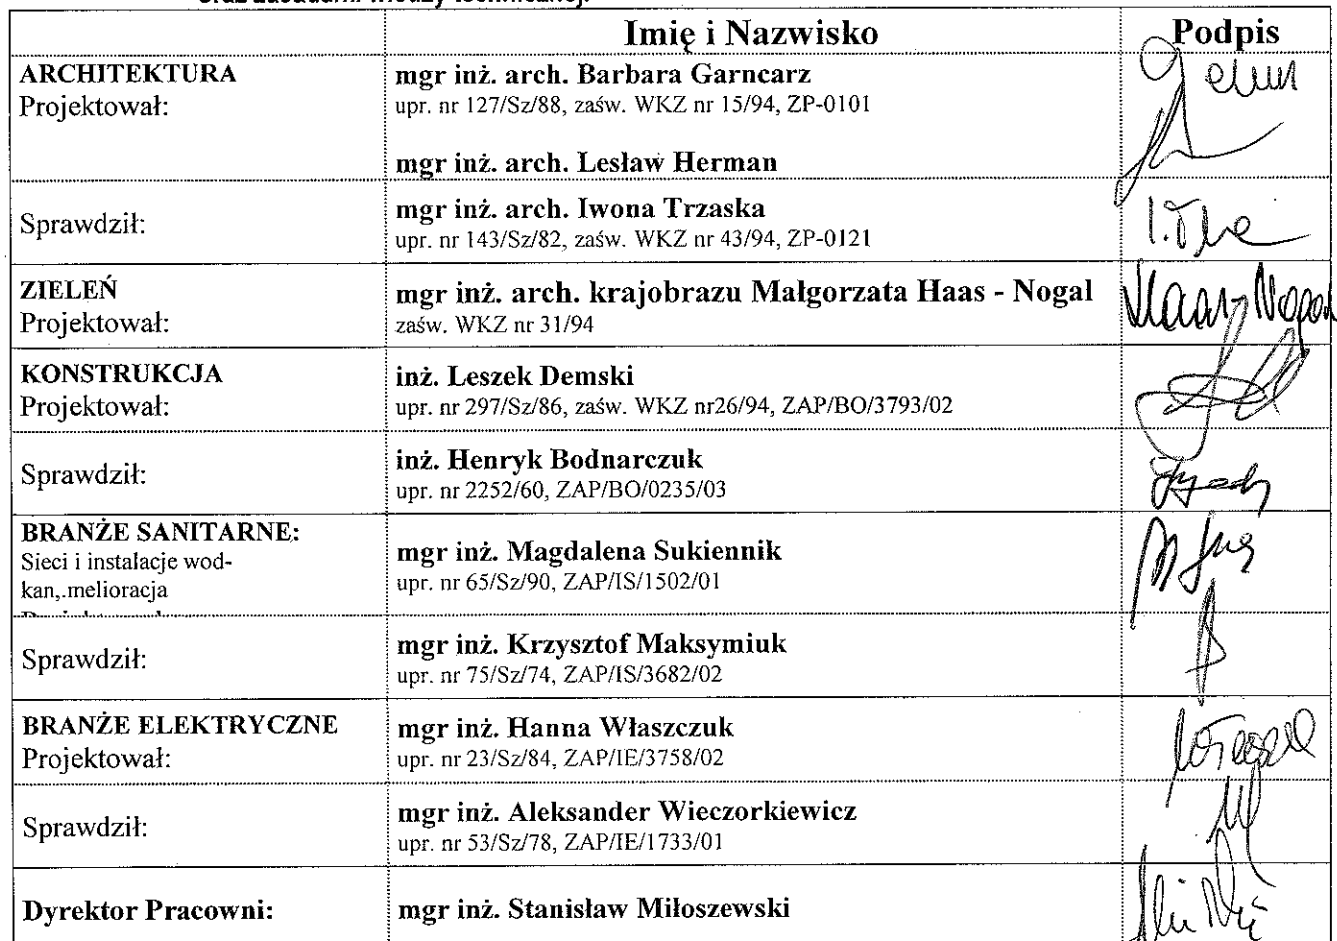 oraz zasadami wiedzy technicznej.
Imię i Nazwisko
Podpis
ARCHITEKTURA
Projektował:
mgr inż. arch. Barbara Garncarz
upr. nr 127/Sz/88, zaśw. WKZ nr 15/94, ZP-0101
mgr inż. arch. Lesław Herman
Sprawdził:
mgr inż. arch. Iwona Trzaska
upr. nr 143/Sz/82, zaśw. WKZ nr 43/94, ZP-0121
ZIELEŃ
Projektował:
mgr inż. arch. krajobrazu Małgorzata Haas - Nogal
zaśw. WKZ nr 31/94
Haas Nogal
KONSTRUKCJA
Projektował:
inż. Leszek Demski
upr. nr 297/Sz/86, zaśw. WKZ nr26/94, ZAP/BO/3793/02
Sprawdził:
inż. Henryk Bodnarczuk
upr. nr 2252/60, ZAP/BO/0235/03
BRANŻE SANITARNE:
Sieci i instalacje wod-
kan,.melioracja
mgr inż. Magdalena Sukiennik
upr. nr 65/Sz/90, ZAP/IS/1502/01
Sprawdził:
mgr inż. Krzysztof Maksymiuk
upr. nr 75/Sz/74, ZAP/IS/3682/02
BRANŻE ELEKTRYCZNE
Projektował:
mgr inż. Hanna Właszczuk
upr. nr 23/Sz/84, ZAP/IE/3758/02
Sprawdził:
mgr inż. Aleksander Wieczorkiewicz
upr. nr 53/Sz/78, ZAP/IE/1733/01
Dyrektor Pracowni:
mgr inż. Stanisław Miłoszewski